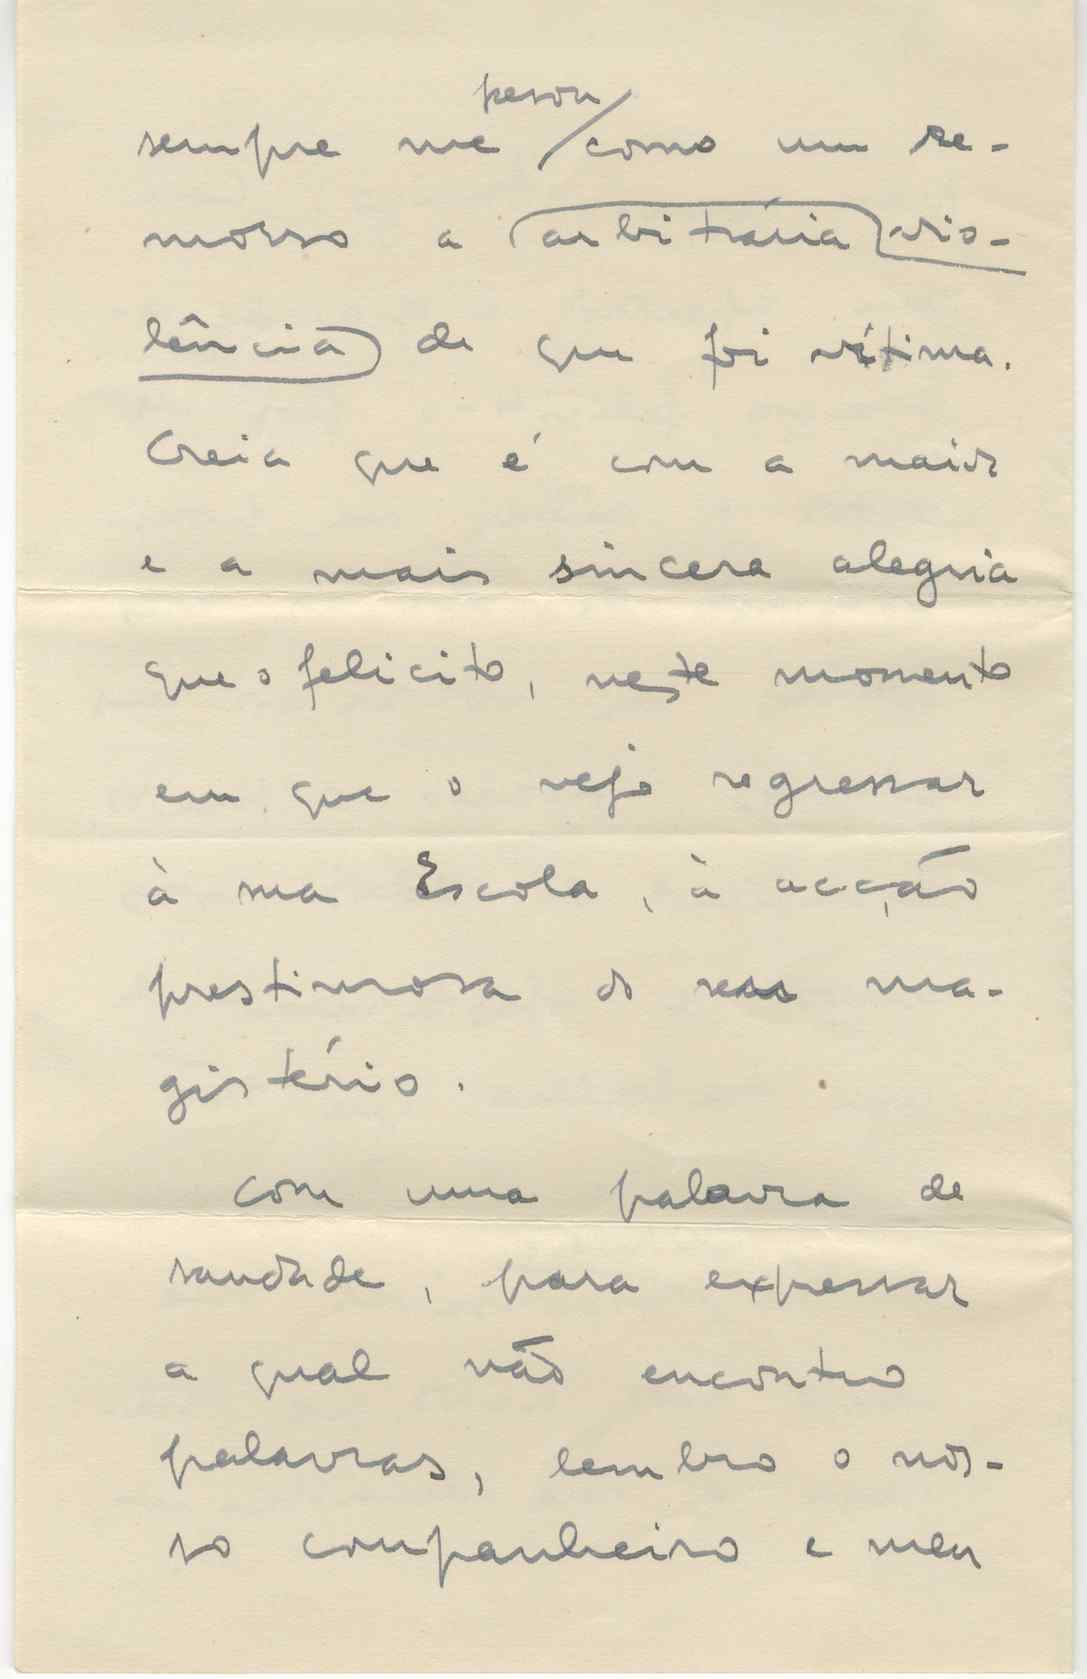 pesou
sempre me / como um re-
morso a arbitrária vio-
lência de que foi vítima.
Creia que é com a maior
e a mais sincera alegria
que o felicito, neste momento
em que o vejo regressar
à sua Escola, à acção
prestimosa do seu ma-
gistério.
Com uma palavra de
saudade, para expressar
a qual não encontro
palavras, lembro o nos-
so companheiro e meu